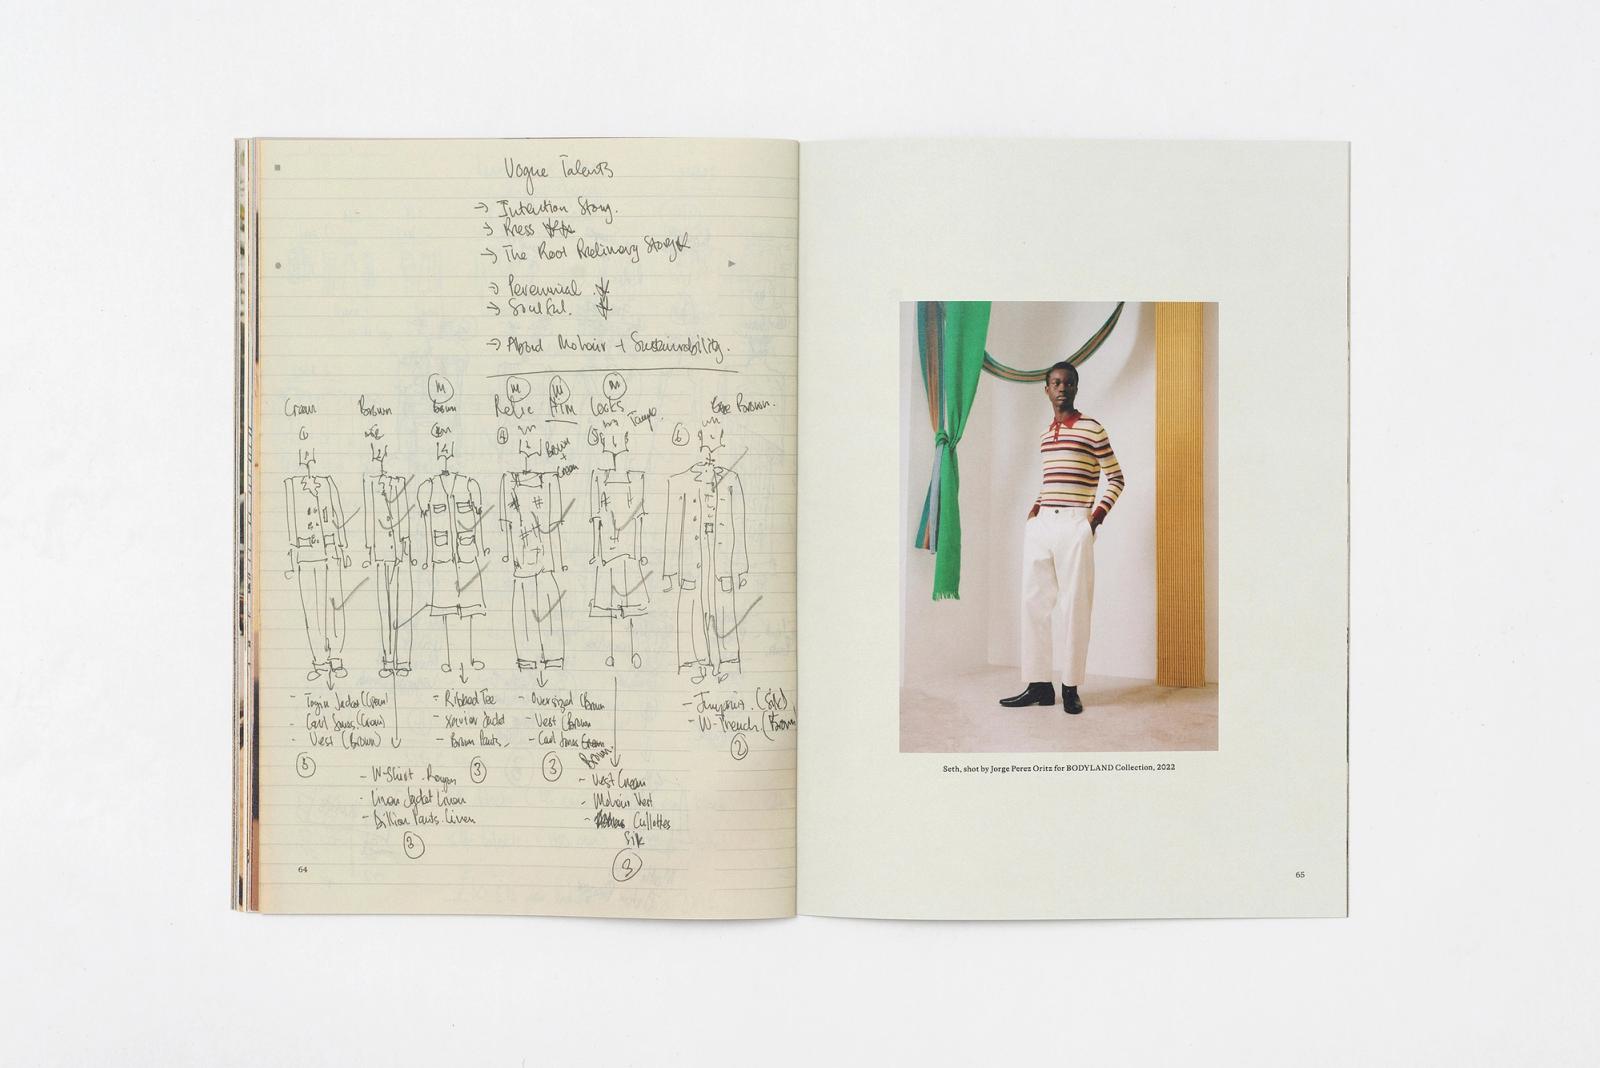 Vogue Talents
→ Intention Story.
→ Press
→ The Root Prelinary Story
→ Perennial
→ Soulful.
→ About Mohair + Sustainability.
M M M M
Cream Brown Brown Relic Him Looks Brown.
Brown
+
Cream
6
- Jacket (Cream)
- Carl Jones (Cream)
- Vest (Brown)
5
- Ribbed Tee
- Xavier Jacket
- Brown Pants
3
- Oversized (Brown
- Vest (Brown
- Carl Jones Cream
Brown.
3
- Jumpsuit. (Silk)
- W-Trench (Brown
2
- W-Shirt. Rayon
- Linen Jacket Linen
- Pants. Linen
3
- Vest Cream
- Mohair Vest
- Cullottes
Silk
3
64
Seth, shot by Jorge Perez Oritz for BODYLAND Collection, 2022
65